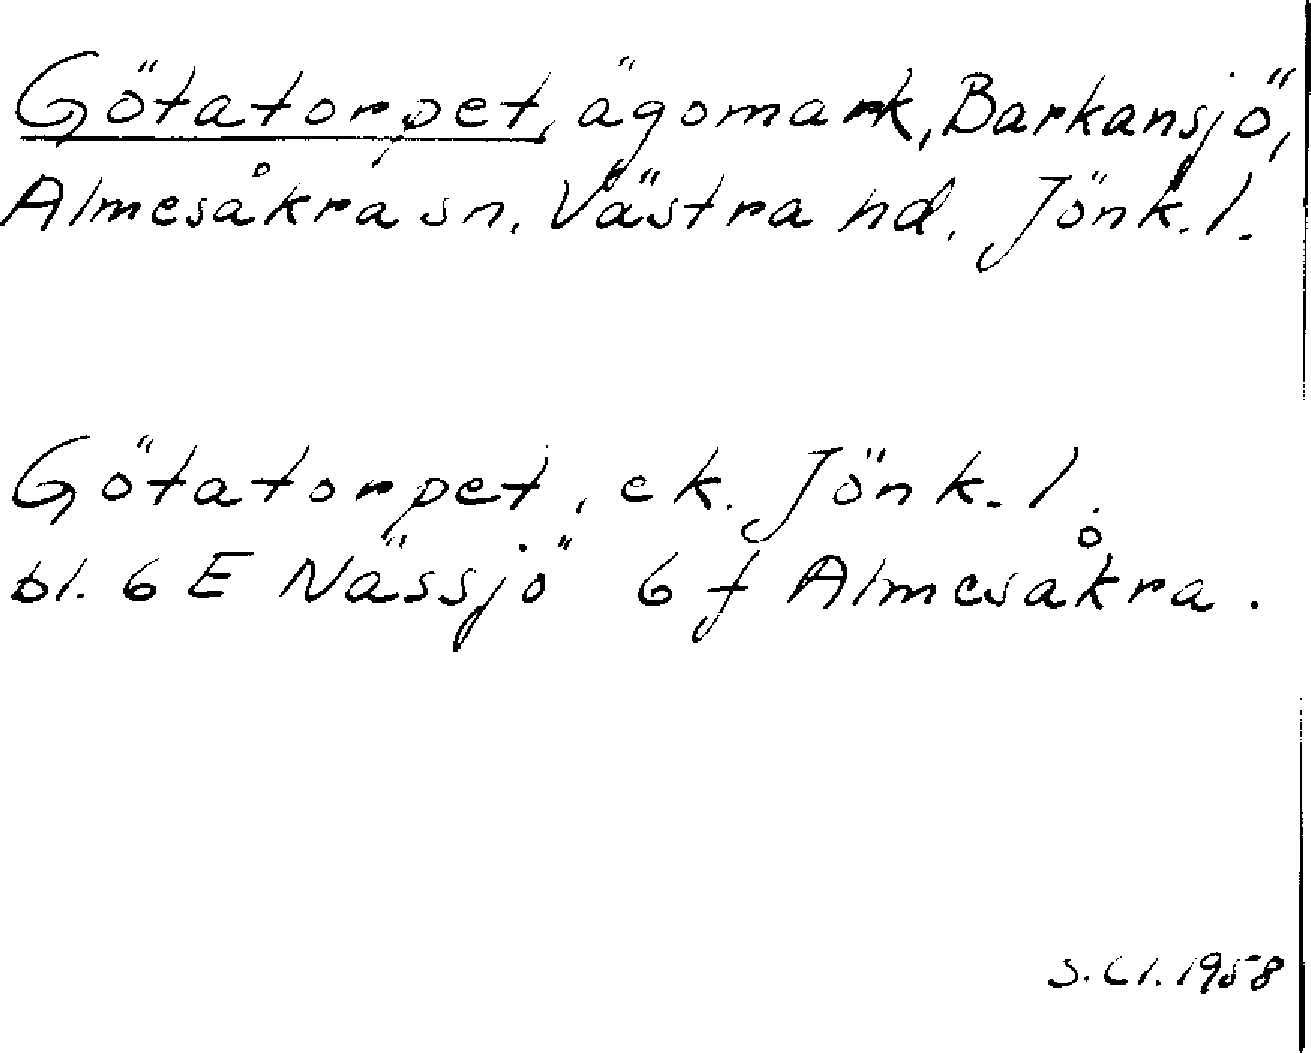 Götatorpet, ägomark, Barkansjö,
Almesåkra sn. Västra hd. Jönk. l.
Götatorpet, ek. Jönk. l.
bl. 6 E Nässjö 6 f Almesåkra.
S. Cl. 1958